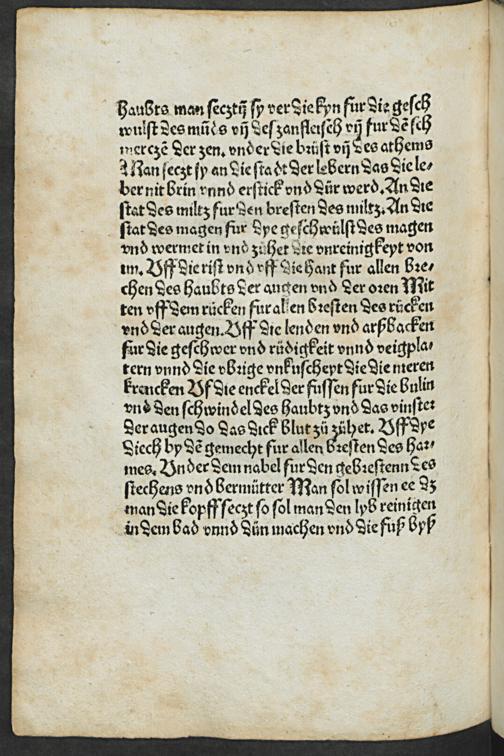 haubts. man secztn̄ sy vnder die kyn fur die gesch
wulst des mūds vn̄ des zanfleisch vn̄ fur dē sch
merczē der zen. vnder die brüst vn̄ des athems
Man seczt sy an die stadt der lebern das die le⸗
ber nit brin vnnd erstick vnd dür werd. An die
stat des miltz fur den bresten des miltz. An die
stat des magen fur dye geschwülst des magen
vnd wermet in vnd zühet die vnreinigkeyt von
im. Vff die rist vnd vff die hant fur allen bre⸗
chen des haubts der augen vnd der oren Mit
ten vff dem rücken fur allen bresten des rücken
vnd der augen. Vff die lenden vnd arßbacken
fur die geschwer vnd rüdigkeit vnnd veigpla⸗
tern vnnd die vbrige vnkuscheyt die die nieren
krencken Vf die enckel der fussen fur die bulin
vnd den schwindel des haubtz vnd das vinster
der augen do das dick blut zü zühet. Vff dye
diech by dē gemecht fur allen bresten des har⸗
mes. Vnder dem nabel fur den gebrestenn des
stechens vnd bermütter Man sol wissen ee dz
man die kopff seczt so sol man den lyb reinigen
in dem bad vnnd dün machen vnd die fuß byß